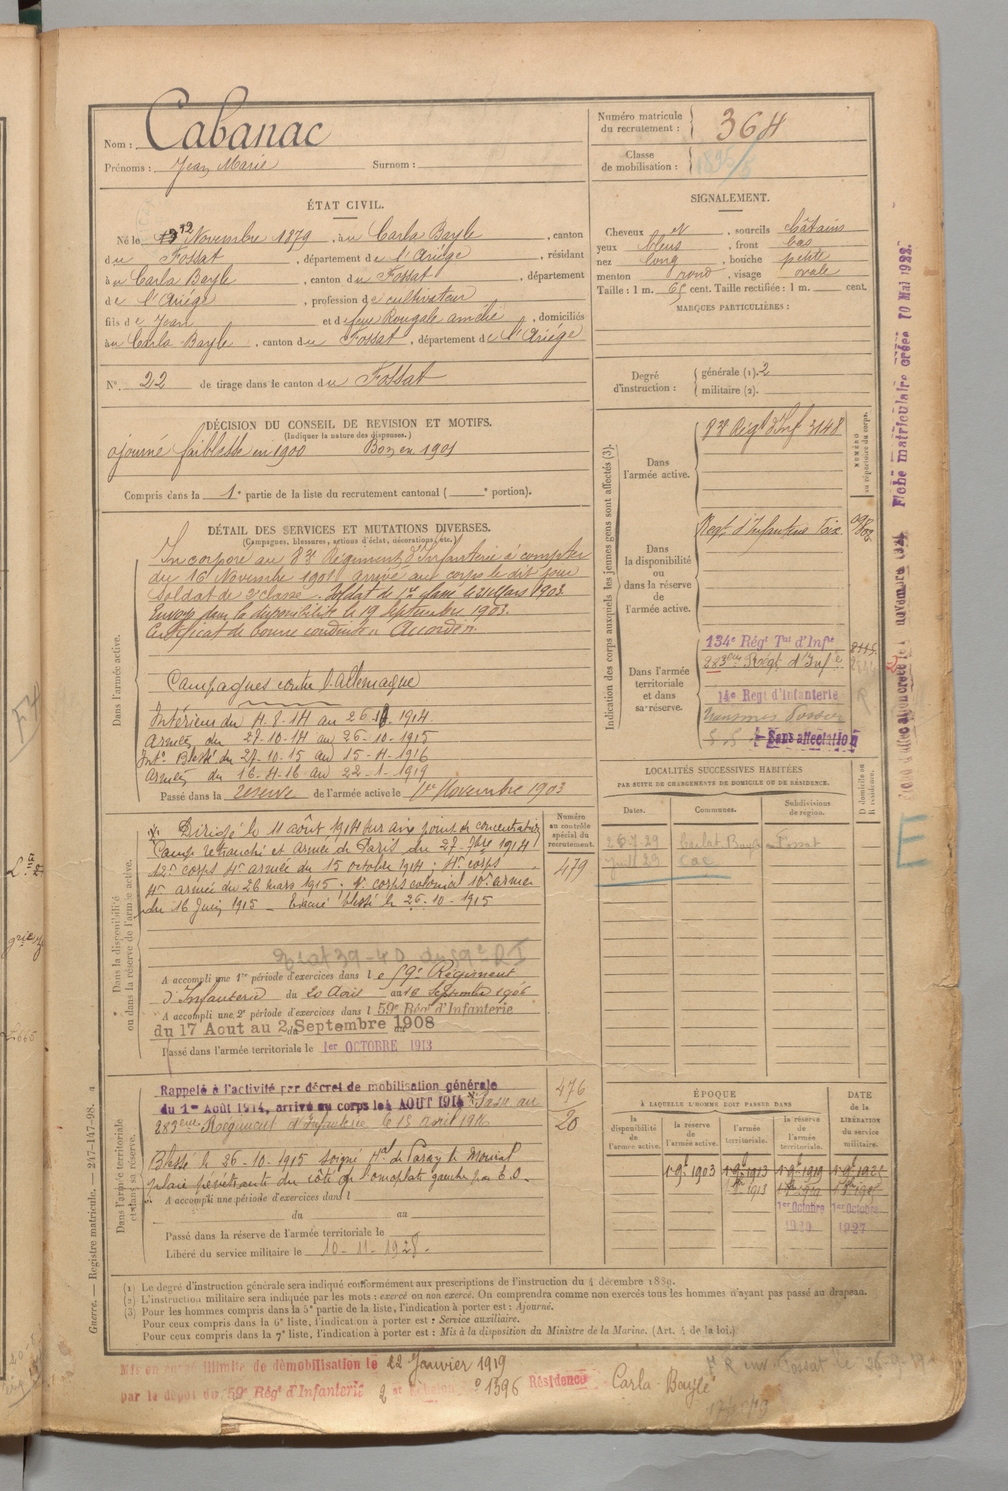 Nom : Cabanac
Prénoms : Jean Marie Surnom :
Numéro matricule
du recrutement : 364
Classe
de mobilisation :
ÉTAT CIVIL.
Né le 12 Novembre 1879, à u Carla Bayle, canton
du Fossat, département de l'Ariège, résidant
à u Carla Bayle, canton du Fossat, département
de l'Ariège, profession de cultivateur
fils de Jean et de feue Rougale, domiciliés
à u Carla Bayle, canton du Fossat, département de l'Ariège
N°. 22 de tirage dans le canton du Fossat
SIGNALEMENT.
Cheveux et, sourcils châtains
yeux bleus, front bas
nez long, bouche petite
menton rond, visage ovale
Taille : 1 m. 65 cent. Taille rectifiée : 1 m. cent.
MARQUES PARTICULIÈRES :
Degré
d'instruction :
générale (1). 2
militaire (2).
DÉCISION DU CONSEIL DE REVISION ET MOTIFS.
(Indiquer la nature des dispenses.)
ajourné faiblesse en 1900 Bon en 1901
Compris dans la 1e partie de la liste du recrutement cantonal ( e portion).
DÉTAIL DES SERVICES ET MUTATIONS DIVERSES.
(Campagnes, blessures, actions d'éclat, décorations, etc.)
Dans l'armée active.
Incorporé au 83e Régiment d'Infanterie à compter
du 16 Novembre 1901, arrivé au corps le dit jour
soldat de 2e classe. Soldat de 1re classe le 21 Mars 1903.
Envoyé dans la disponibilité le 19 septembre 1903.
Certificat de bonne conduite Accordé.
Campagnes contre l'Allemagne
Intérieur du 4.8.14 au 26.10.1914
Armées du 27-10-14 au 26-10-1915
Intr. Blessé du 27-10-15 au 15-4-1916
Armées du 16-4-16 au 22-1-1919
Passé dans la réserve de l'armée active le 1er Novembre 1903
Indication des corps auxquels les jeunes gens sont affectés (3).
Dans
l'armée active.
NUMÉRO
au répertoire du corps.
83e Régt d'Inf 3148
Dans
la disponibilité
ou
dans la réserve
de
l'armée active.
Regt. d'Infanterie Foix
Dans l'armée
territoriale
et dans
sa réserve.
134e Régt Tal d'Infie
283eme Régt d'Infie
14e Regt d'Infanterie
Sans affectation
Dans la disponibilité
ou dans la réserve de l'armée active.
Numéro
au contrôle
spécial du
recrutement.
479
Dirigé le 11 août 1914 sur
Camp retranché et Armée de Paris du 27-7bre 1914
12e corps 4e armée du 15 octobre 1914. 4e corps
4e armée du 26 mars 1915. 1er corps colonial 10e armée
du 16 Juin 1915 - Evacué blessé le 26-10-1915
A accompli une 1re période d'exercices dans le 59e Régiment
d'Infanterie du 20 Août au 16 Septembre 1906
A accompli une 2e période d'exercices dans l 59e Régt d'Infanterie
du 17 Aout au 2 Septembre 1908
Passé dans l'armée territoriale le 1er OCTOBRE 1913
LOCALITÉS SUCCESSIVES HABITÉES
PAR SUITE DE CHANGEMENTS DE DOMICILE OU DE RÉSIDENCE.
D domicile ou
R résidence.
Dates. Communes. Subdivisions
de région.
26.7.29 Carlat Bayle Fossat
Dans l'armée territoriale
et dans sa réserve.
476
20
Rappelé à l'activité par décret de mobilisation générale
du 1er Août 1914, arrivé au corps le 4 AOUT 1914. Passé au
283eme Régiment d'Infanterie le 15 avril 1916
Blessé le 26-10-1915 soigné Hal de Paray le Monial
plaie pénétrante du côté de l'omoplate gauche par E.O.
A accompli une période d'exercices dans l
du au
Passé dans la réserve de l'armée territoriale le
Libéré du service militaire le 10-11-1928.
ÉPOQUE
À LAQUELLE L'HOMME DOIT PASSER DANS
DATE
de la
LIBÉRATION
du service
militaire.
la
disponibilité
de
l'armée active.
la réserve
de
l'armée active.
l'armée
territoriale.
la réserve
de
l'armée
territoriale.
1 9bre 1903 1 9bre 1913 1 9bre 1919
1er Octobre 1er Octobre
1927
(1) Le degré d'instruction générale sera indiqué conformément aux prescriptions de l'instruction du 4 décembre 1889.
(2) L'instruction militaire sera indiquée par les mots : exercé ou non exercé. On comprendra comme non exercés tous les hommes n'ayant pas passé au drapeau.
(3) Pour les hommes compris dans la 5e partie de la liste, l'indication à porter est : Ajourné.
Pour ceux compris dans la 6e liste, l'indication à porter est : Service auxiliaire.
Pour ceux compris dans la 7e liste, l'indication à porter est : Mis à la disposition du Ministre de la Marine. (Art. 4 de la loi.)
Mis en congé illimité de démobilisation le 22 Janvier 1919
par le dépôt du 59e Régt d'Infanterie 2e Echelon n° 1396 Résidence Carla-Bayle
Guerre. — Registre matricule. — 247-147-98.
Fiche matriculaire créée 10 Mai 1922.
E